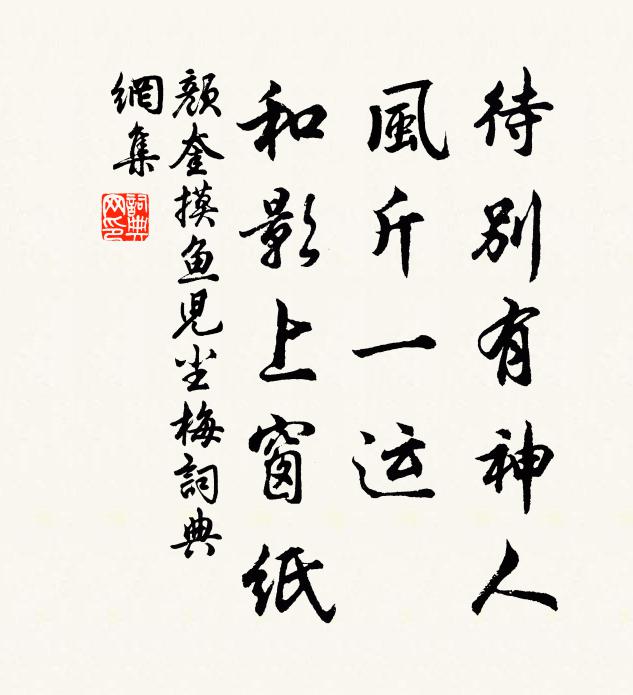 待別有神人
風斤一运
和影上窗紙
顏奎摸魚児坐梅詞典
網集
詞典网印